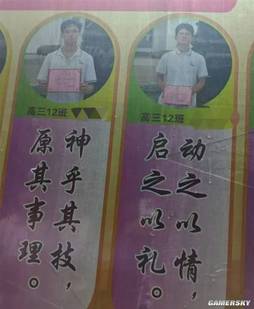 高三12班
神乎其技，
原其事理。
高三12班
动之以情，
启之以礼。
GAMERSKY